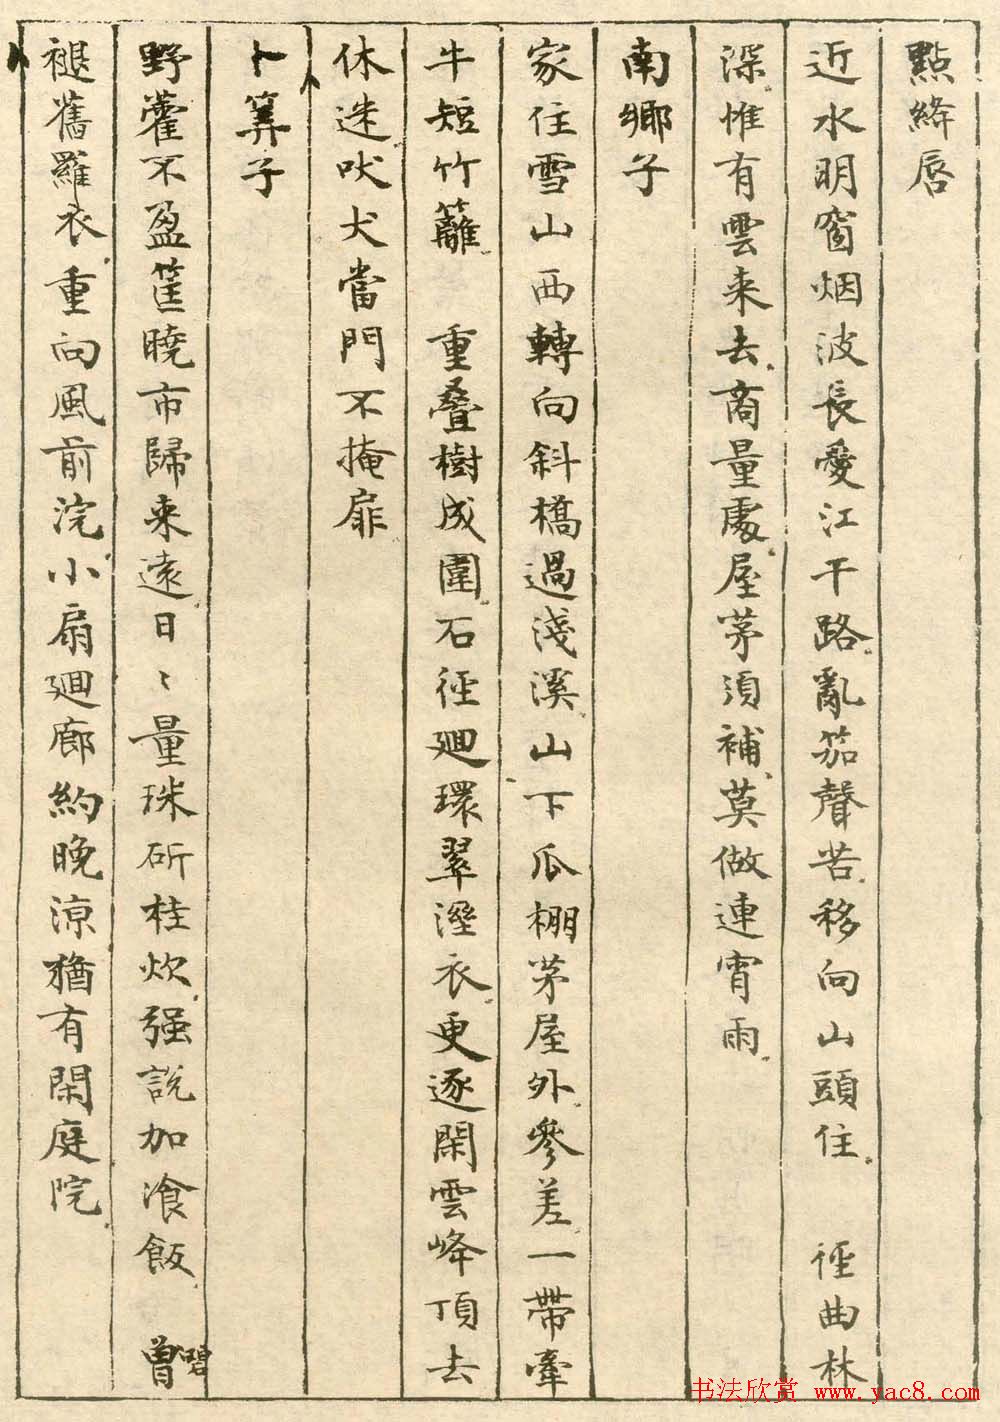 點絳唇
近水明窗烟波長愛江干路亂笳聲苦移向山頭住 徑曲林
深惟有雲来去商量處屋茅須補莫做連宵雨
南鄉子
家住雪山西轉向斜橋過淺溪山下瓜棚茅屋外參差一帶牽
牛短竹籬 重叠樹成圍石徑廻環翠溼衣更逐閑雲峰頂去
休迷吠犬當門不掩扉
卜算子
野藿不盈筐曉市歸来遠日〻量珠斫桂炊强說加飡飯 曾碧
褪舊羅衣重向風前浣小扇廻廊約晚涼猶有閑庭院
书法欣赏 www.yac8.com